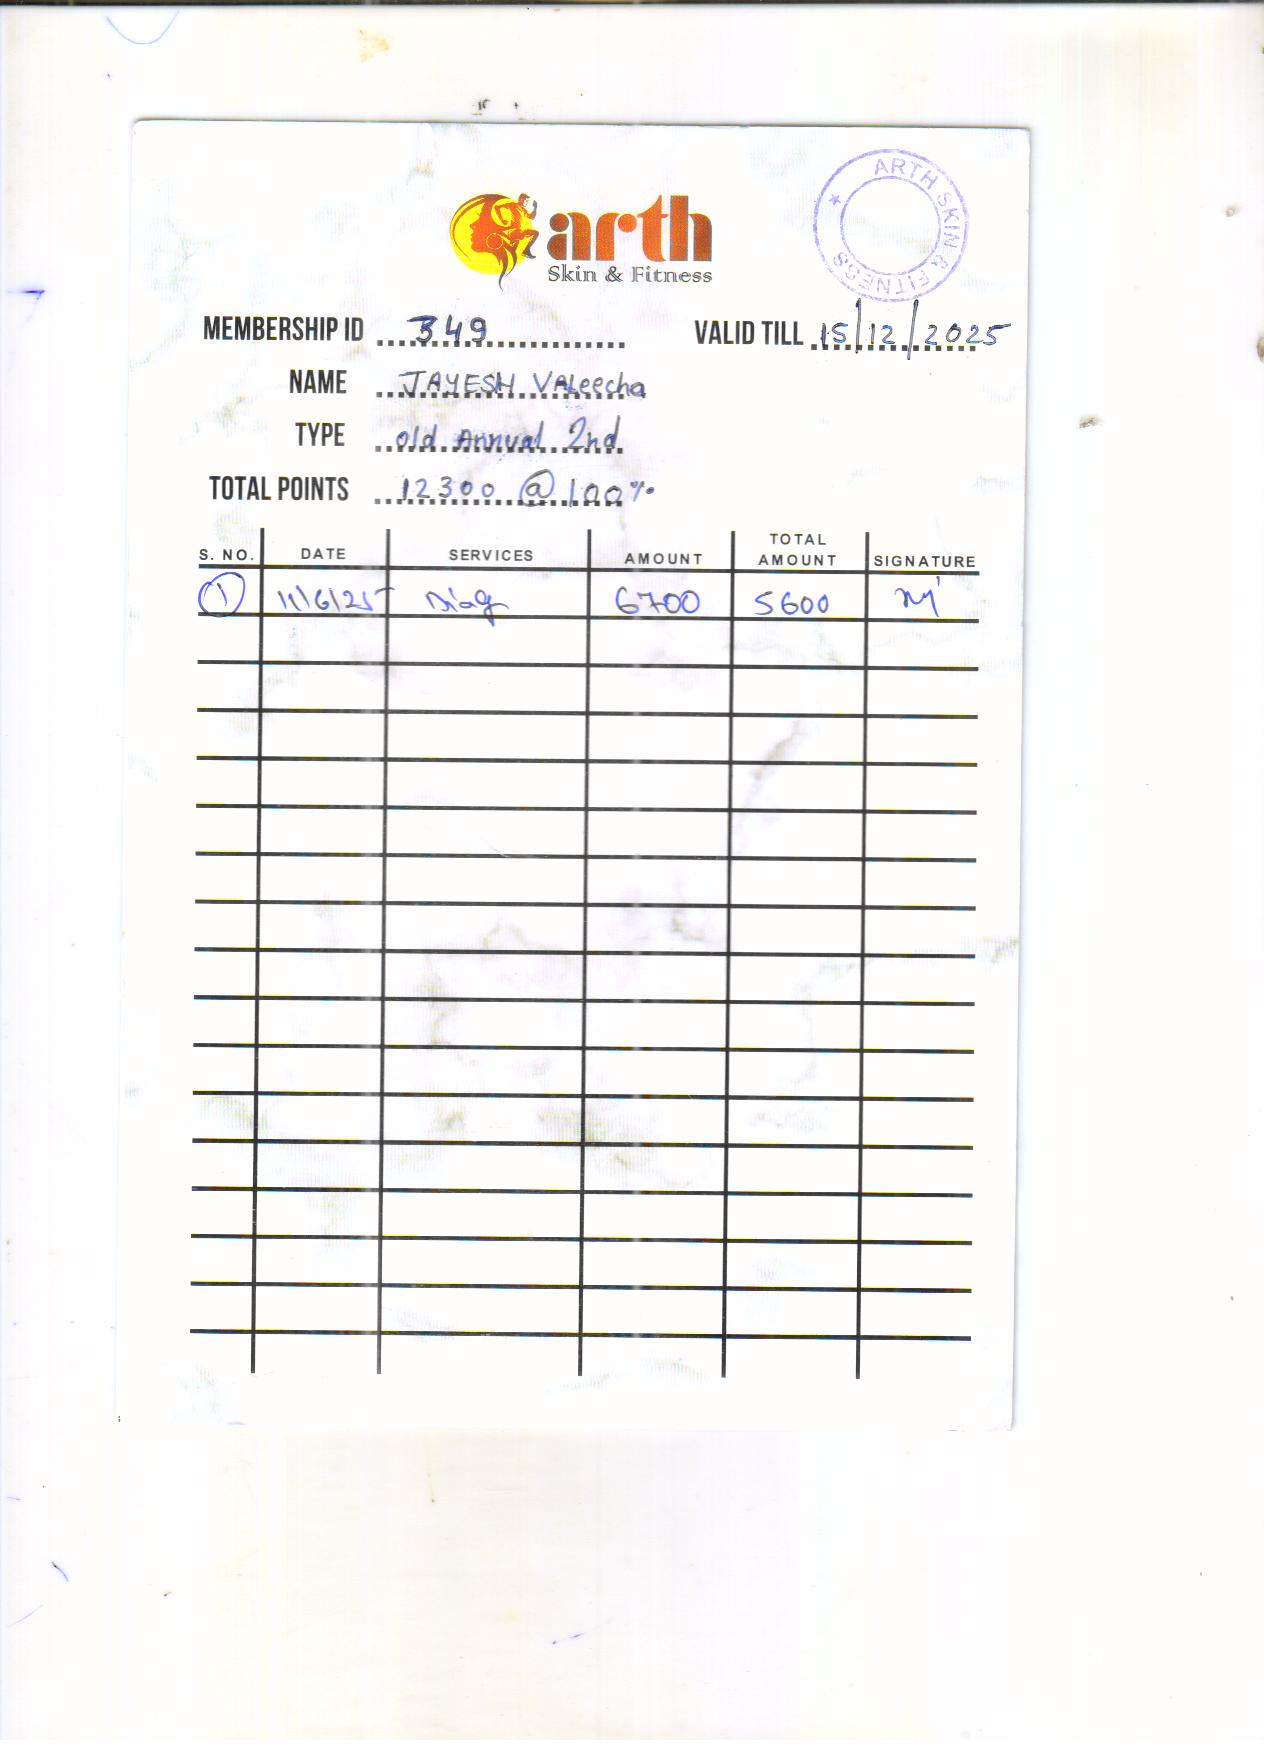 arth
Skin & Fitness
ARTH SKIN & FITNESS
MEMBERSHIP ID 349
VALID TILL 15/12/2025
NAME JAYESH Valeecha
TYPE old Annual 2nd
TOTAL POINTS 12300 @ 100%
S. NO. DATE SERVICES AMOUNT TOTAL AMOUNT SIGNATURE
1 11/6/25 6700 5600